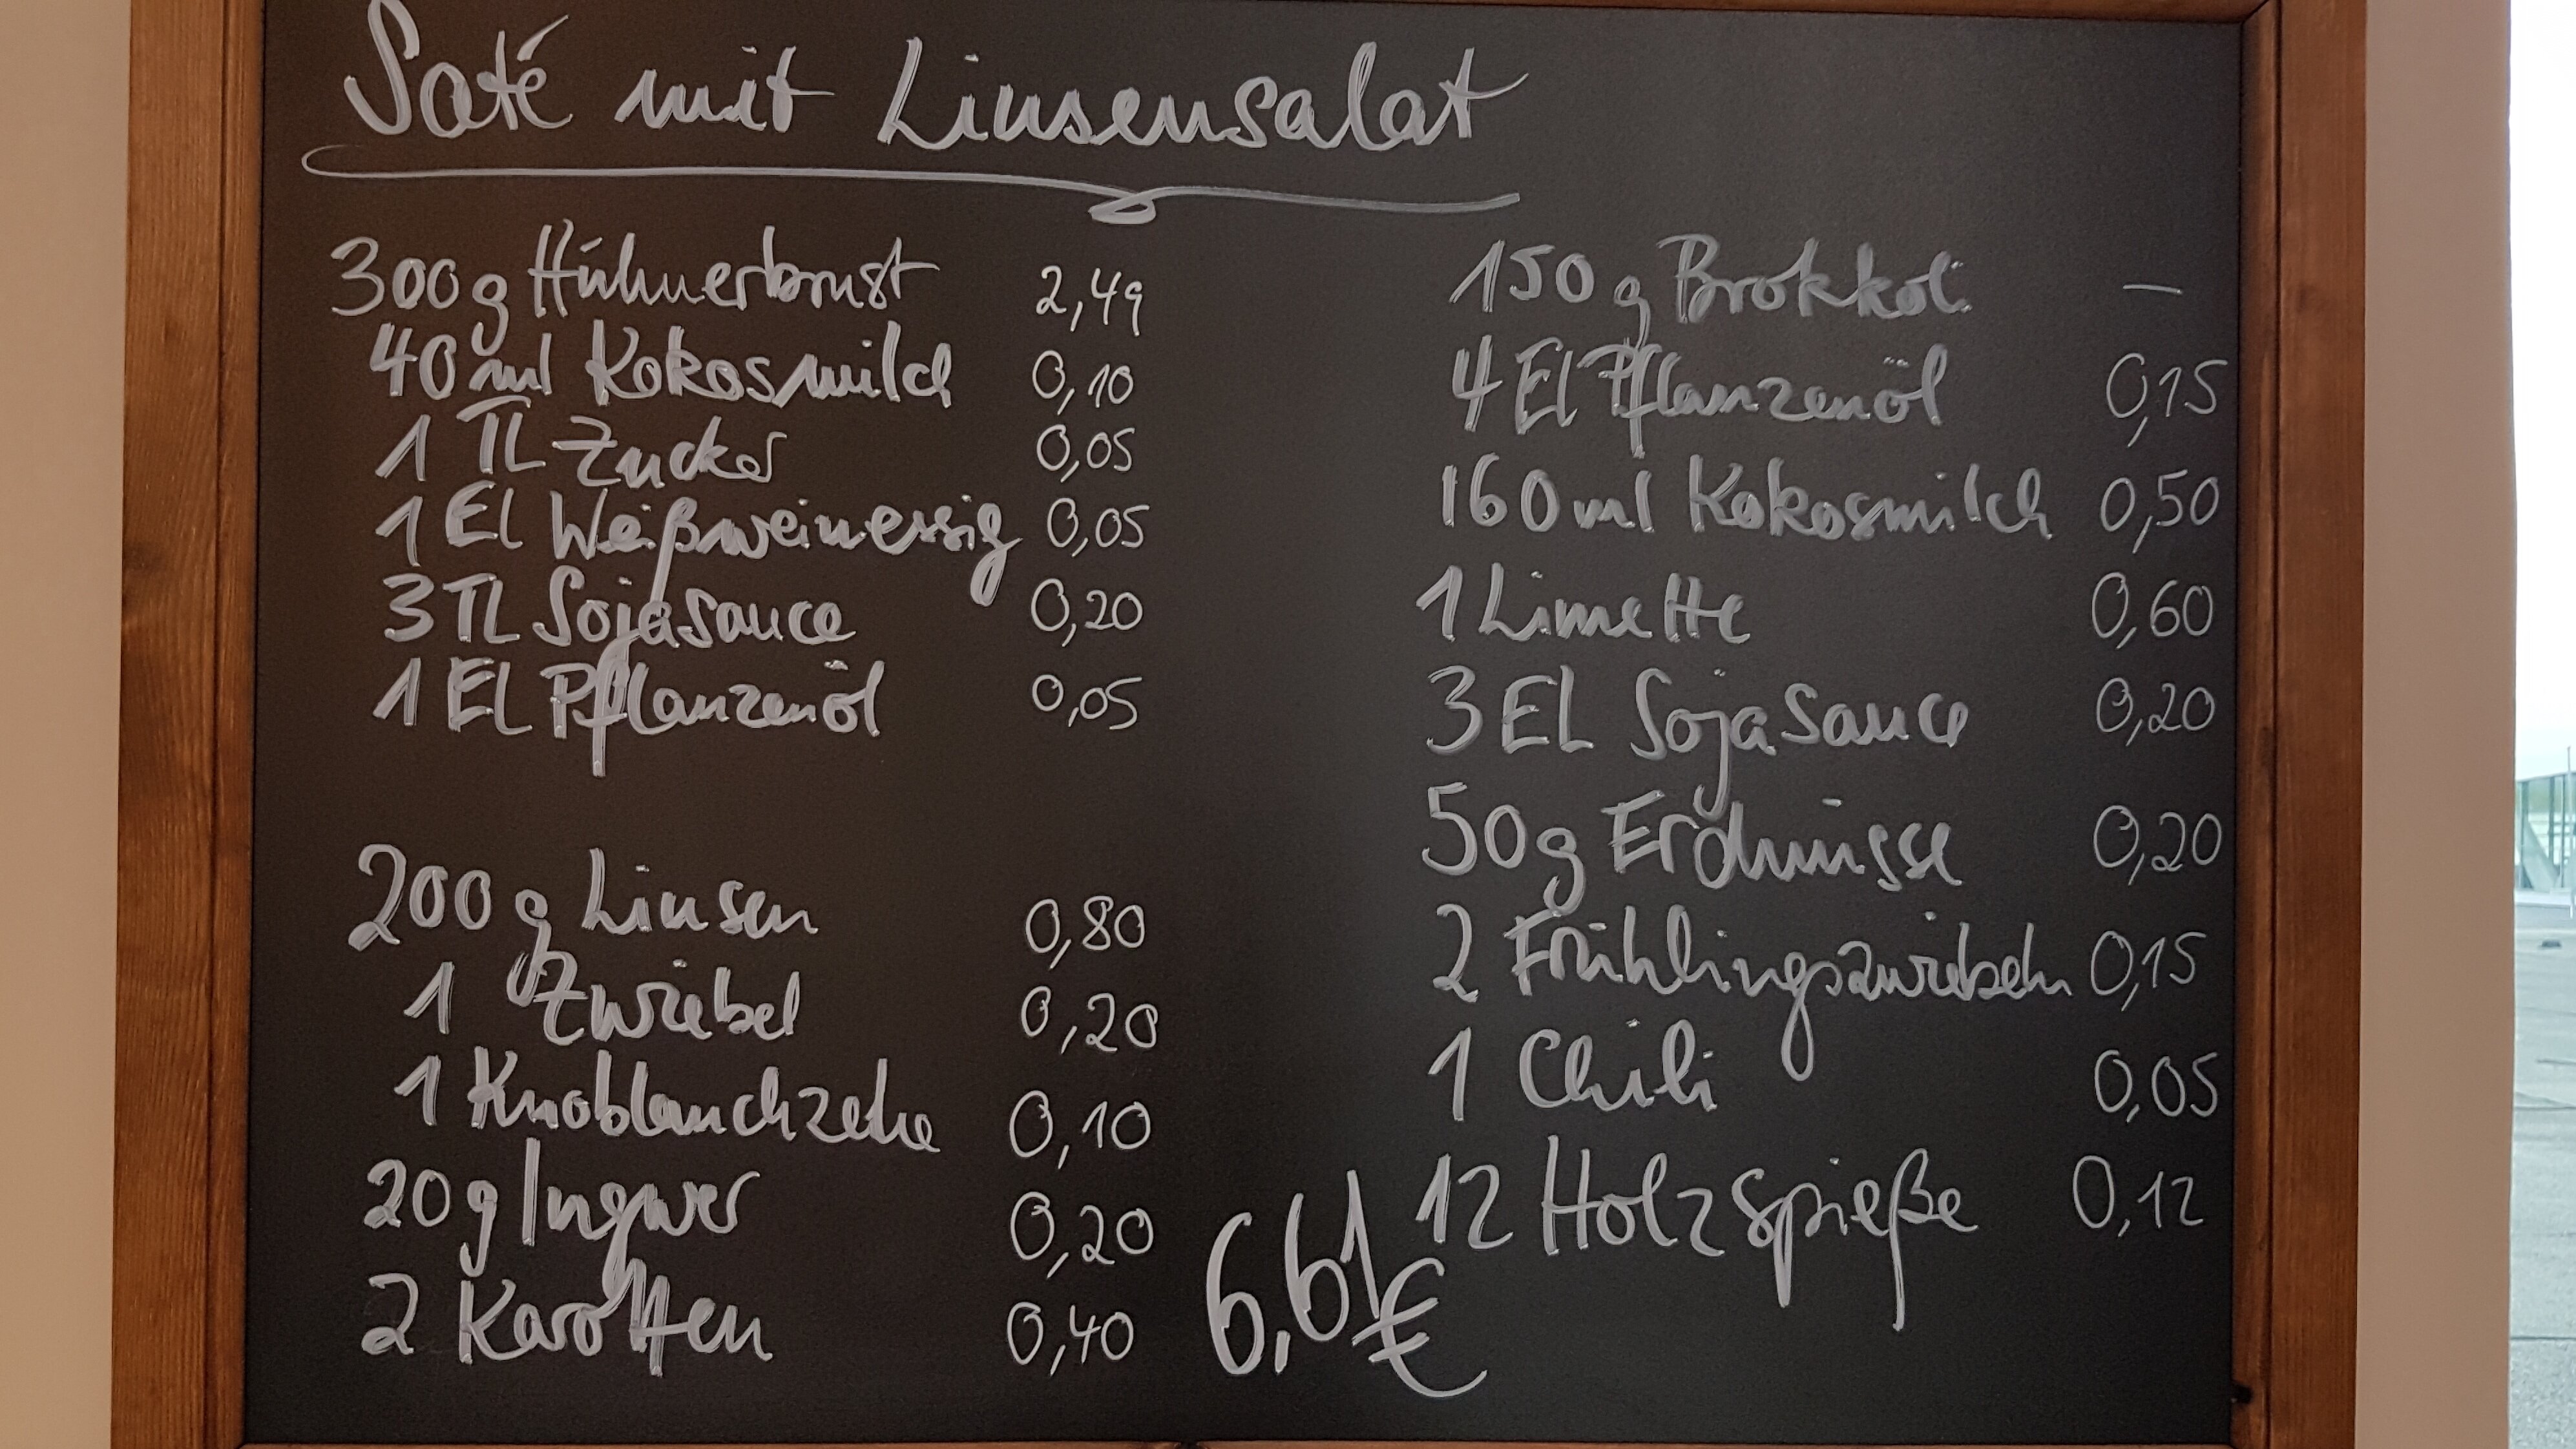 Saté mit Linsensalat
300g Hühnerbrust 2,49
40 ml Kokosmilch 0,10
1 TL Zucker 0,05
1 EL Weißweinessig 0,05
3 TL Sojasauce 0,20
1 EL Pflanzenöl 0,05
200 g Linsen 0,80
1 Zwiebel 0,20
1 Knoblauchzehe 0,10
20g Ingwer 0,20
2 Karotten 0,40
150 g Brokkoli —
4 El Pflanzenöl 0,15
160 ml Kokosmilch 0,50
1 Limette 0,60
3 EL Sojasauce 0,20
50g Erdnüsse 0,20
2 Frühlingszwiebeln 0,15
1 Chili 0,05
12 Holzspieße 0,12
6,61€